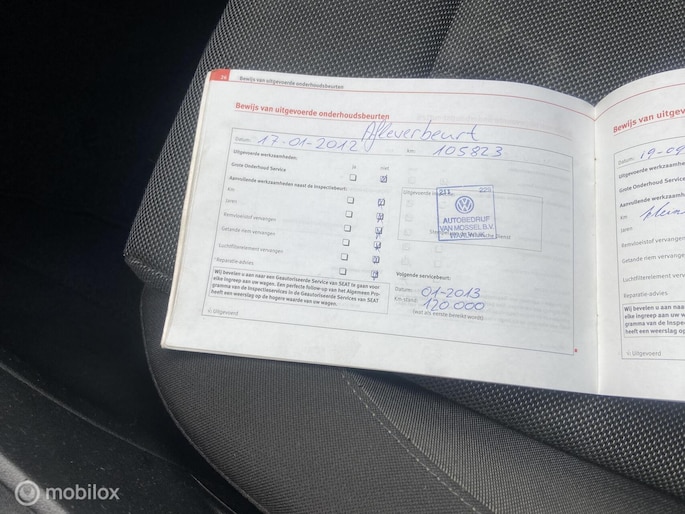 24 Bewijs van uitgevoerde onderhoudsbeurten
Bewijs van uitgevoerde onderhoudsbeurten
Afleverbeurt
Datum: 17-01-2012 km: 105823
Uitgevoerde werkzaamheden: Ja niet
Grote Onderhoud Service
Aanvullende werkzaamheden naast de Inspectiebeurt:
Km
Jaren
Remvloeistof vervangen
Getande riem vervangen
Luchtfilterelement vervangen
*Reparatie-advies
211 229
AUTOBEDRIJF
VAN MOSSEL B.V.
WAALWIJK
Wij bevelen u aan naar een Geautoriseerde Service van SEAT te gaan voor
elke ingreep aan uw wagen. Een perfecte follow-up van het Algemeen Pro-
gramma van de Inspectieservices in de Geautoriseerde Services van SEAT
heeft een weerslag op de hogere waarde van uw wagen.
Volgende servicebeurt:
Datum: 01-2013
Km.stand: 120.000
(wat als eerste bereikt wordt)
√: Uitgevoerd
Bewijs van uitgev
Datum: 19-09
Uitgevoerde werkzaamhed
Grote Onderhoud Service
Aanvullende werkzaamhede
Km
Jaren
Remvloeistof vervangen
Getande riem vervangen
Luchtfilterelement vervangen
Reparatie-advies
Wij bevelen u aan naar een
elke ingreep aan uw wagen.
gramma van de Inspectieserv
heeft een weerslag op de hog
√: Uitgevoerd
mobilox